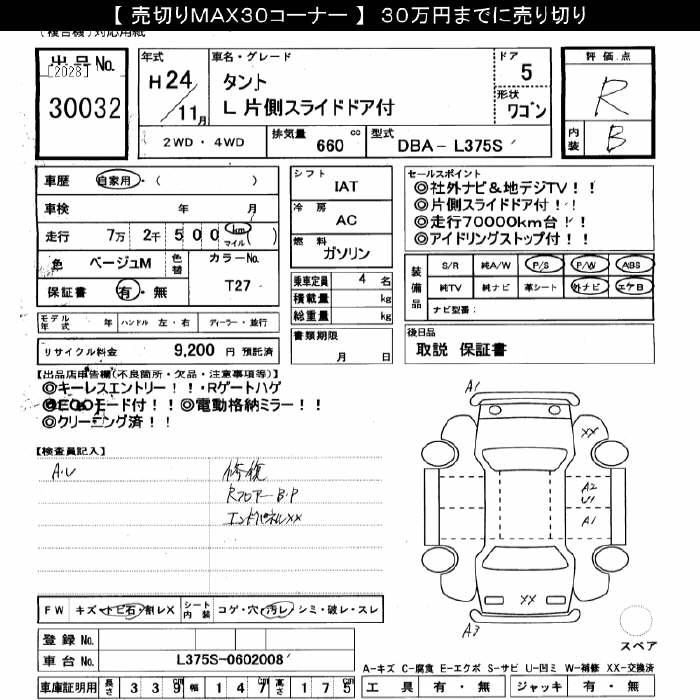 【 売切りMAX30コーナー 】 30万円までに売り切り
(複合機)対応用紙
出品No.
[2028]
30032
年式
H24/11月
車名・グレード
タント
L 片側スライドドア付
ドア
5
形状
ワゴン
評価点
R
内装
B
2WD・4WD
排気量 660 cc
型式 DBA- L375S
車歴 自家用・( )
車検 年 月
走行 7万 2千 5 0 0 km マイル( )
色 ベージュM 色替 カラーNo.
保証書 有・無 T27
シフト
IAT
冷房
AC
燃料
ガソリン
乗車定員 4 名
積載量 kg
総重量 kg
書類期限
月 日
セールスポイント
◎社外ナビ&地デジTV!!
◎片側スライドドア付!!
◎走行70000km台!!
◎アイドリングストップ付!!
装備品
S/R 純A/W P/S P/W ABS
純TV 純ナビ 革シート 外ナビ エアB
ナビ型番:
モデル年式 年 ハンドル 左・右 ディーラー・並行
リサイクル料金 9,200 円 預託済
後日品
取説 保証書
【出品店申告欄(不良箇所・欠品・注意事項等)】
◎キーレスエントリー!!・Rゲートハゲ
◎ECOモード付!!◎電動格納ミラー!!
◎クリーニング済!!
【検査員記入】
A・U
修復
Rフロアー B・P
エンドパネルXX
A1
XX
A2
U1
A1
XX
A3
スペア
FW キズ・トビ石・割レX シート内装 コゲ・穴・汚レ・シミ・破レ・スレ
登録 No.
車台 No. L375S-0602008
車庫証明用 長さ 3 3 9 cm 幅 1 4 7 cm 高さ 1 7 5 cm
A-キズ C-腐食 E-エクボ S-サビ U-凹ミ W-補修 XX-交換済
工具 有・無 ジャッキ 有・無